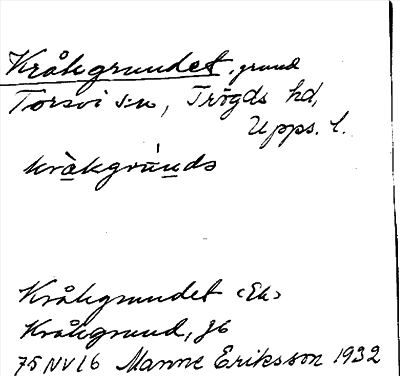 Kråkgrundet, grund
Torsvi s:n, Trögds hd,
Upps. l.
kràkgrúnds
Kråkgrundet <Ek>
Kråkgrund, J6
75 NV 16 Manne Eriksson 1932